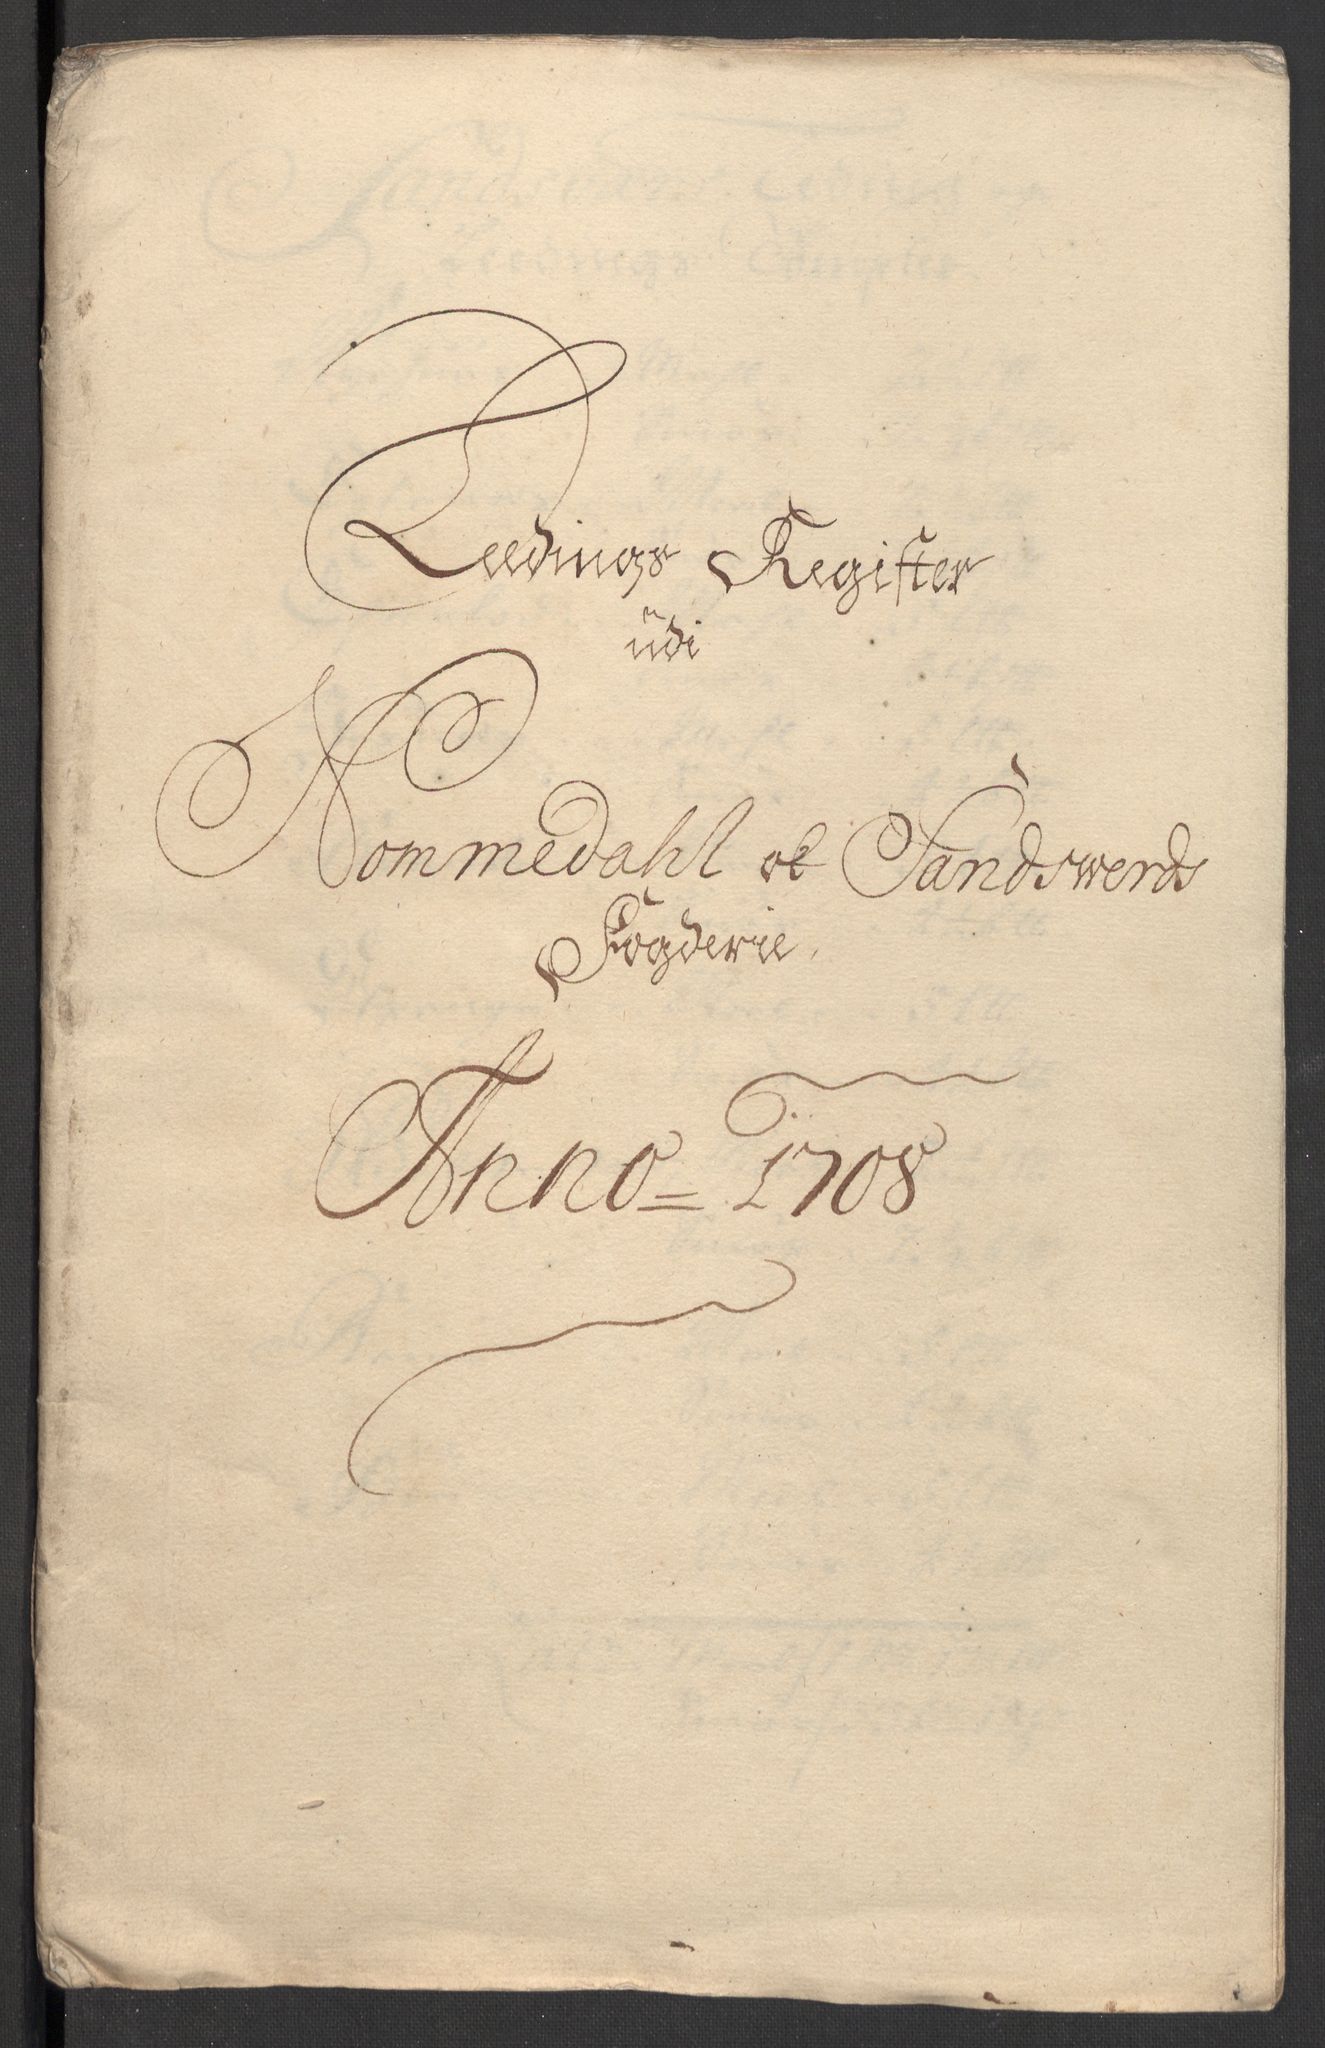 Leedings Register
udi
Nommedahl oc Sandswerds
Fogderie.
Anno = 1708